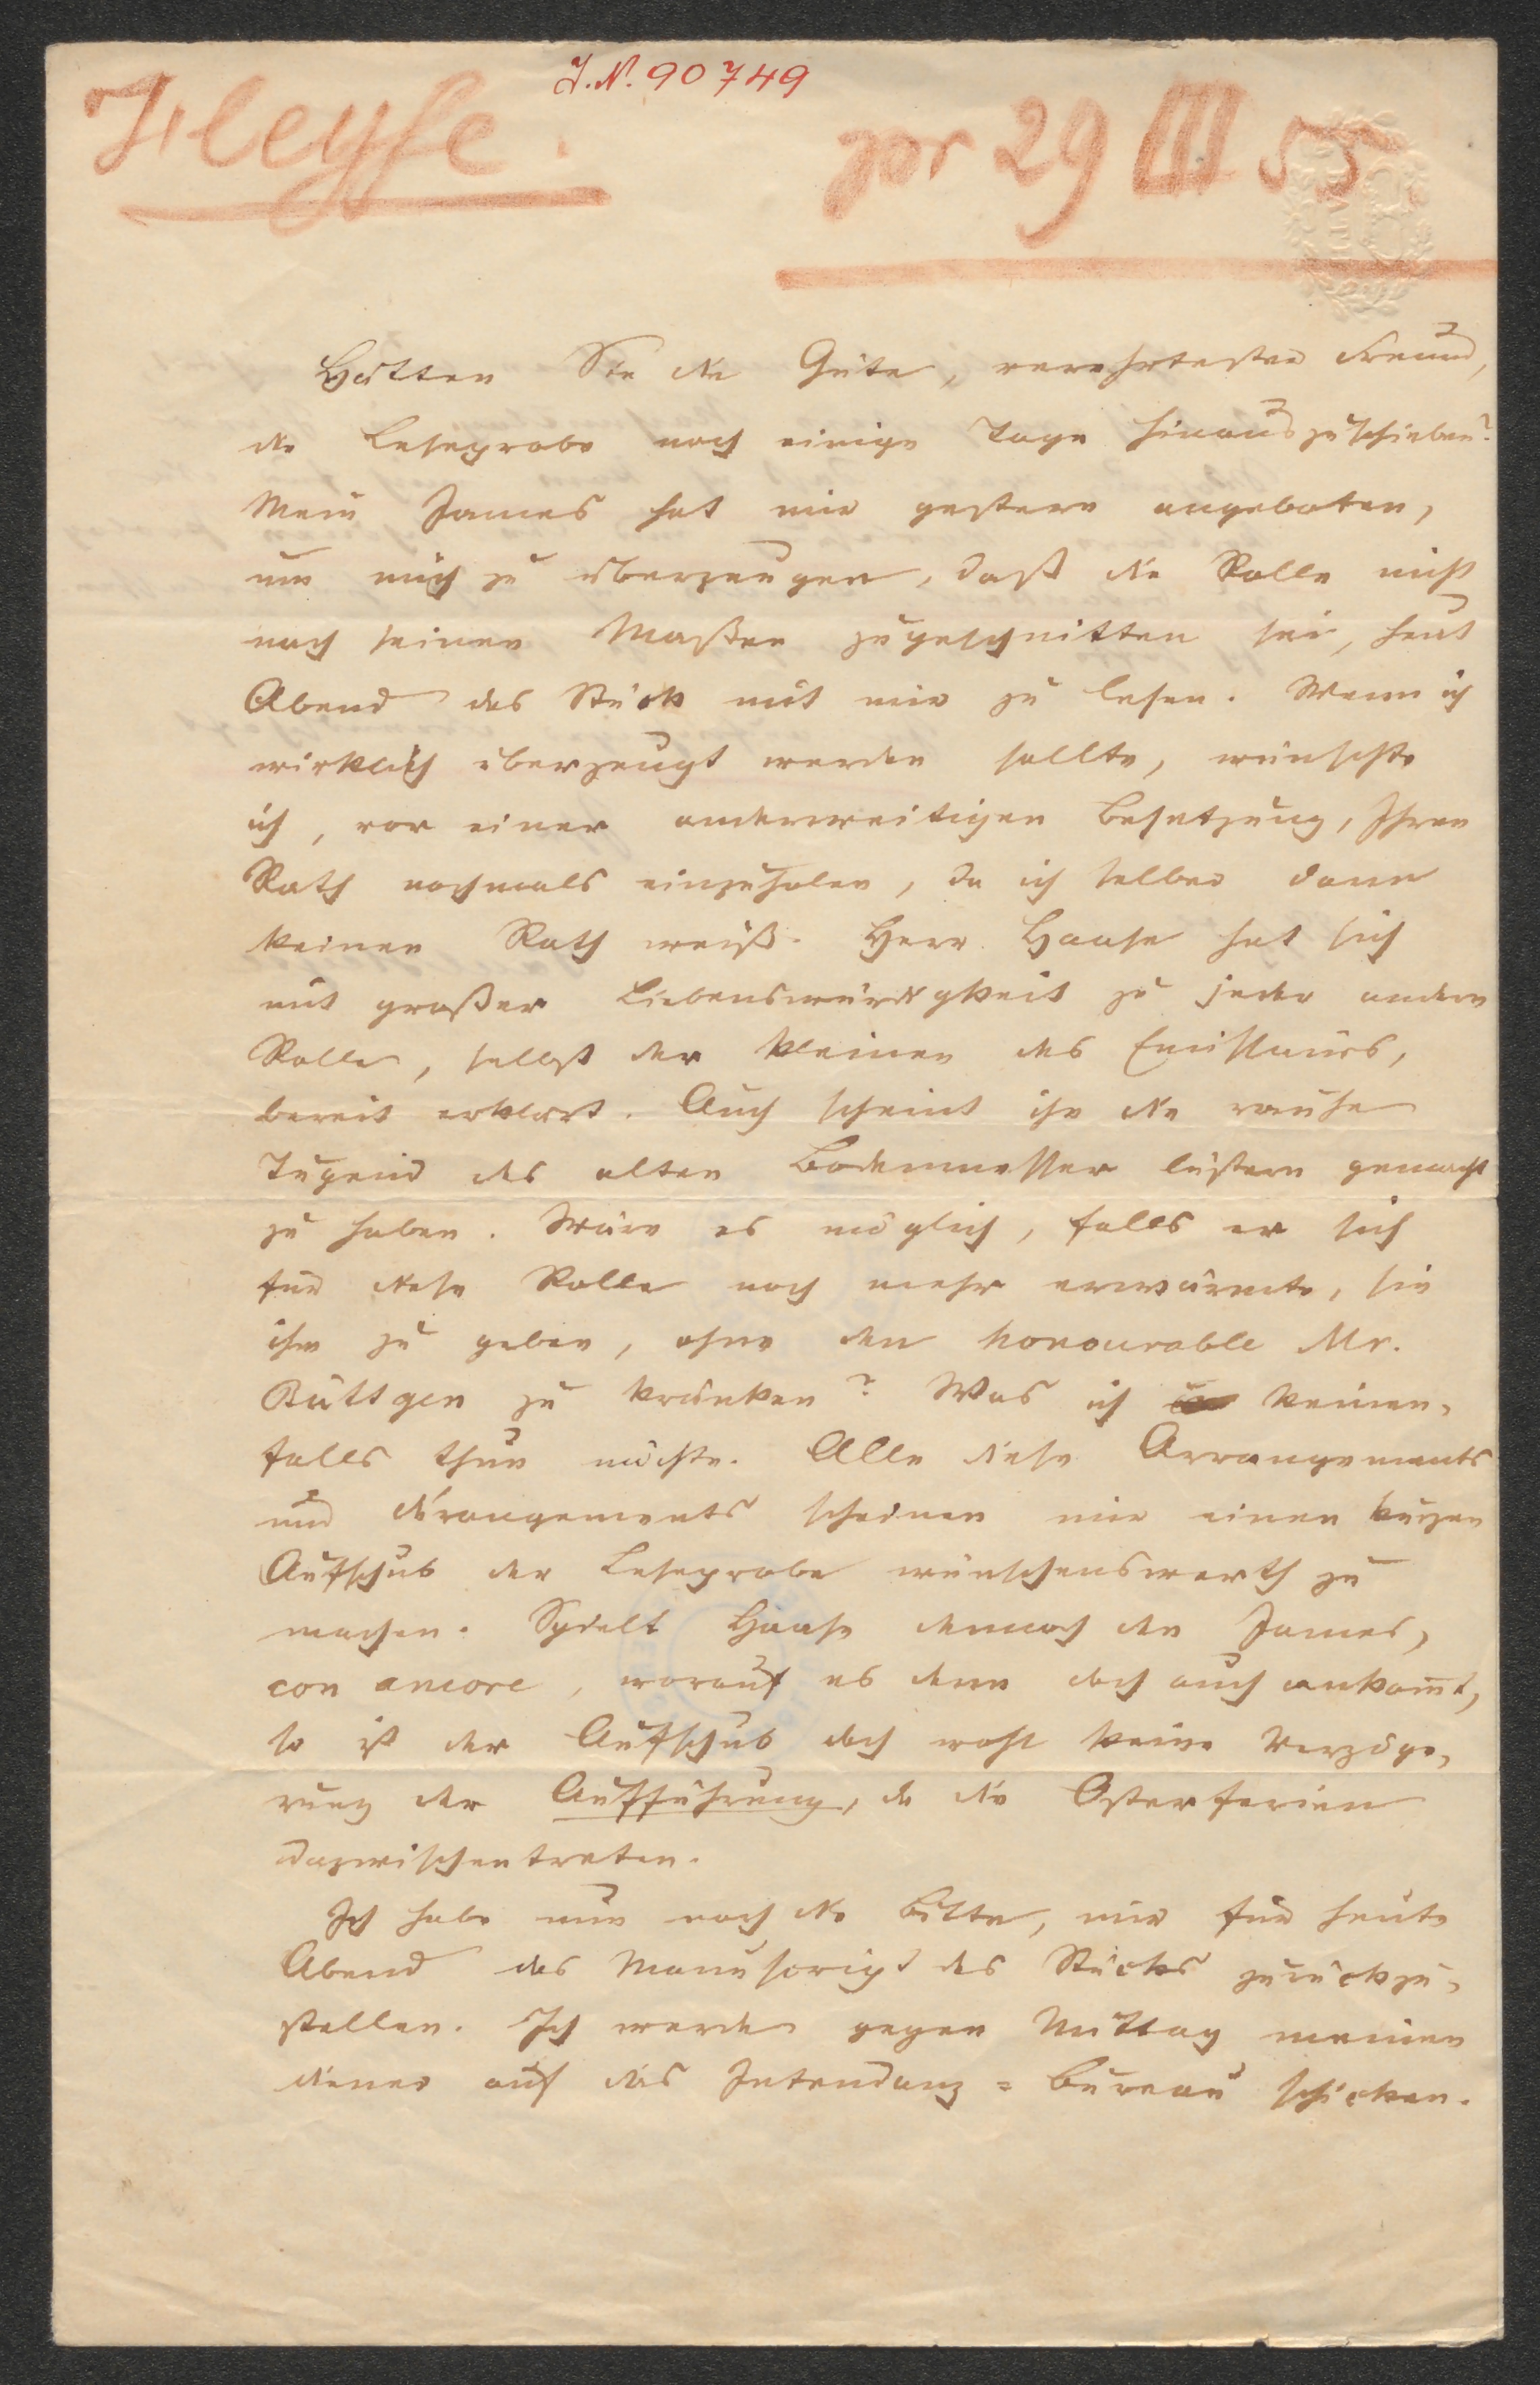 J.N. 90749
Heyse.
pr 29 III 55
Hätten Sie die Güte, verehrtester Freund,
die Leseprobe noch einige Tage hinauszuschieben?
Mein James hat mir gestern angeboten,
um mich zu überzeugen, daß die Rolle nicht
nach seinen Maßen zugeschnitten sei, heut
Abend das Stück mit mir zu lesen. Wenn ich
wirklich überzeugt werden sollte, wünschte
ich, vor einer anderweitigen Besetzung, Ihren
Rath nochmals einzuholen, da ich selber dann
keinen Rath weiß. Herr Haase hat sich
mit großer Liebenswürdigkeit zu jeder andern
Rolle, selbst der kleinen des Emissärs,
bereit erklärt. Auch scheint ihn die rauhe
Tugend des alten Bodenmesser lüstern gemacht
zu haben. Wäre es möglich, falls er sich
für diese Rolle noch mehr erwärmte, sie
ihm zu geben, ohne den honourable Mr.
Büttgen zu kränken? Was ich keinen-
falls thun möchte. Alle diese Arrangements
und Dérangements scheinen mir einen kurzen
Aufschub der Leseprobe wünschenswerth zu
machen. Spielt Haase dennoch den James,
con amore, worauf es denn doch auch ankom̅t,
so ist der Aufschub doch wohl keine Verzöge-
rung der Aufführung, da die Osterferien
dazwischentreten.
Ich habe nun noch die Bitte, mir für heute
Abend das Manuscript des Stücks zurückzu-
stellen. Ich werde gegen Mittag meinen
Diener auf das Intendanz=Bureau schicken.